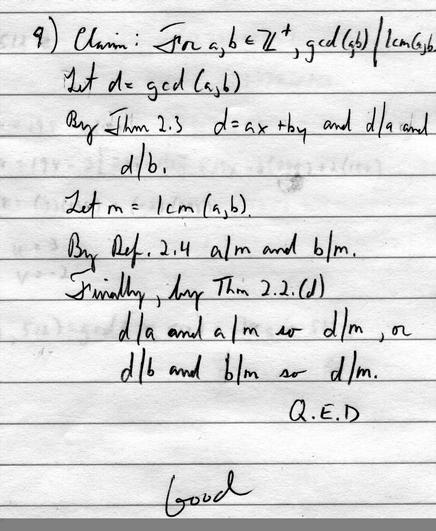 9) Claim: For a,b ∈ Z⁺, gcd(a,b) | lcm(a,b
Let d = gcd (a,b)
By Thm 2.3 d = ax + by and d|a and
d|b.
Let m = lcm (a,b).
By Def. 2.4 a|m and b|m.
Finally, by Thm 2.2.(d)
d|a and a|m so d|m, or
d|b and b|m so d|m.
Q.E.D
Good